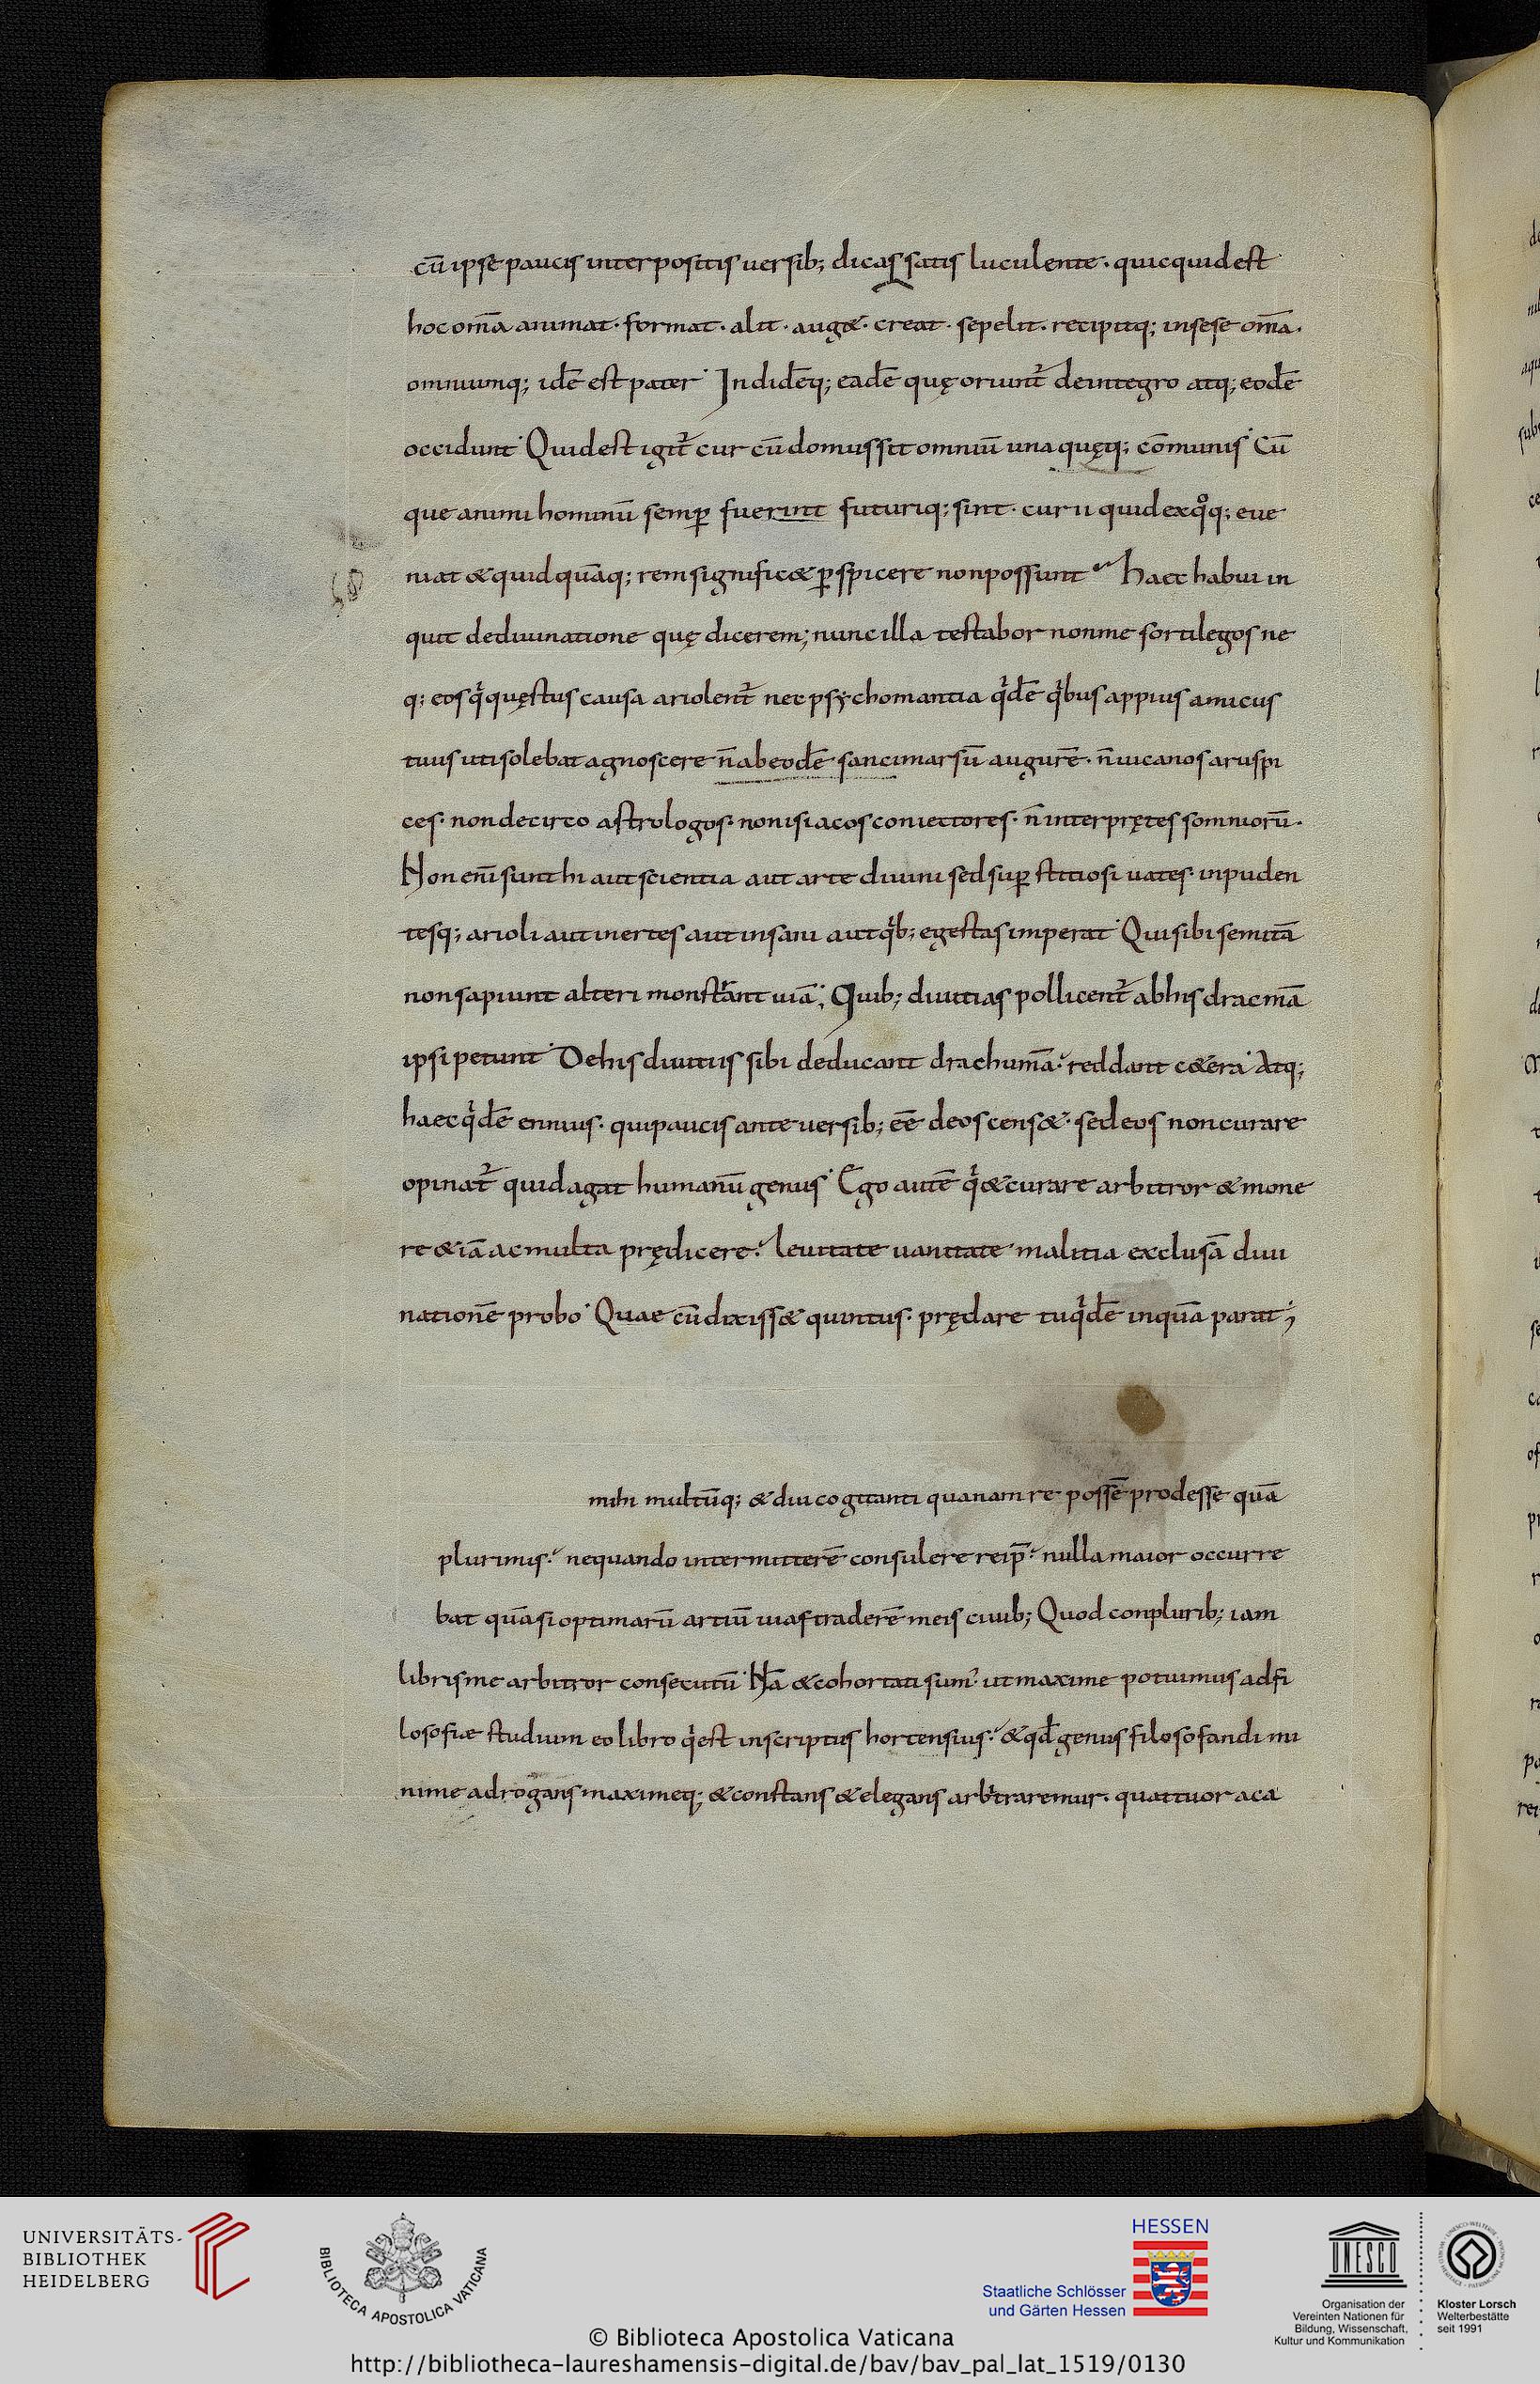 cū ipse paucis interpositis uersib; dicas satis luculente. quicquid est
hoc om̄a animat. format. alit. aug&. creat. sepelit. recipitq; in sese om̄a.
omniumq; idē est pater Indidēq; eadē quę oriunt̄ de integro atq; eodē
occidunt Quid est igit̄ cur cū domus sit omniū una quęq; cōmunis Cū
que animi hominū semꝑ fuerint futuriq; sint. cur ii quid ex qoq; eue
niat & quid quāq; rem signific& ꝑspicere non possunt haec habui in
quit de diuinatione quę dicerem; nunc illa testabor non me sortilegos ne
q; eos qi quęstus causa ariolent̄ nec psychomantia qidē qibus appius amicus
tuus uti solebat agnoscere n̄ abeodē sanci marsū augurē. n̄ uicanos aruspi
ces. non decirco astrologos. non isiacos coniectores. n̄ interprętes somniorū.
Non eni̅ sunt hi aut scientia aut arte diuini sed suꝑstitiosi uates. inpuden
tesq; arioli aut inertes aut insani aut qib; egestas imperat Qui sibi semitā
non sapiunt alteri monstrant uiā; Quib; diuitias pollicent̄ ab his dracmā
ipsi petunt De his diuitiis sibi deducant drachumā. reddant c&era Atq;
haec qidē ennius. qui paucis ante uersib; eē deos cens&. sed eos non curare
opinat̄ quid agat humanū genus Ego autē qi & curare arbitror & mone
re &iā ac multa prędicere. leuitate uanitate malitia exclusā diui
nationē probo Quae cū dixiss& quintus. pręclare tu qidē inquā parat;
mihi multūq; & diu cogitanti quanam re possē prodesse quā
plurimis. ne quando intermitterē consulere reip̄. nulla maior occurre
bat quā si optimarū artiū uias traderē meis ciuib; Quod conplurib; iam
libris me arbitror consecutū Nā & cohortati sum' ut maxime potuimus ad fi
losofiae studium eo libro qi est inscriptus hortensius. & qd̄ genus filosofandi mi
nime adrogans maximeq; & constans & elegans arbitraremur. quattuor aca
UNIVERSITÄTS-
BIBLIOTHEK
HEIDELBERG
BIBLIOTECA APOSTOLICA VATICANA
HESSEN
Staatliche Schlösser
und Gärten Hessen
UNESCO
Organisation der
Vereinten Nationen für
Bildung, Wissenschaft,
Kultur und Kommunikation
Kloster Lorsch
Welterbestätte
seit 1991
© Biblioteca Apostolica Vaticana
http://bibliotheca-laureshamensis-digital.de/bav/bav_pal_lat_1519/0130